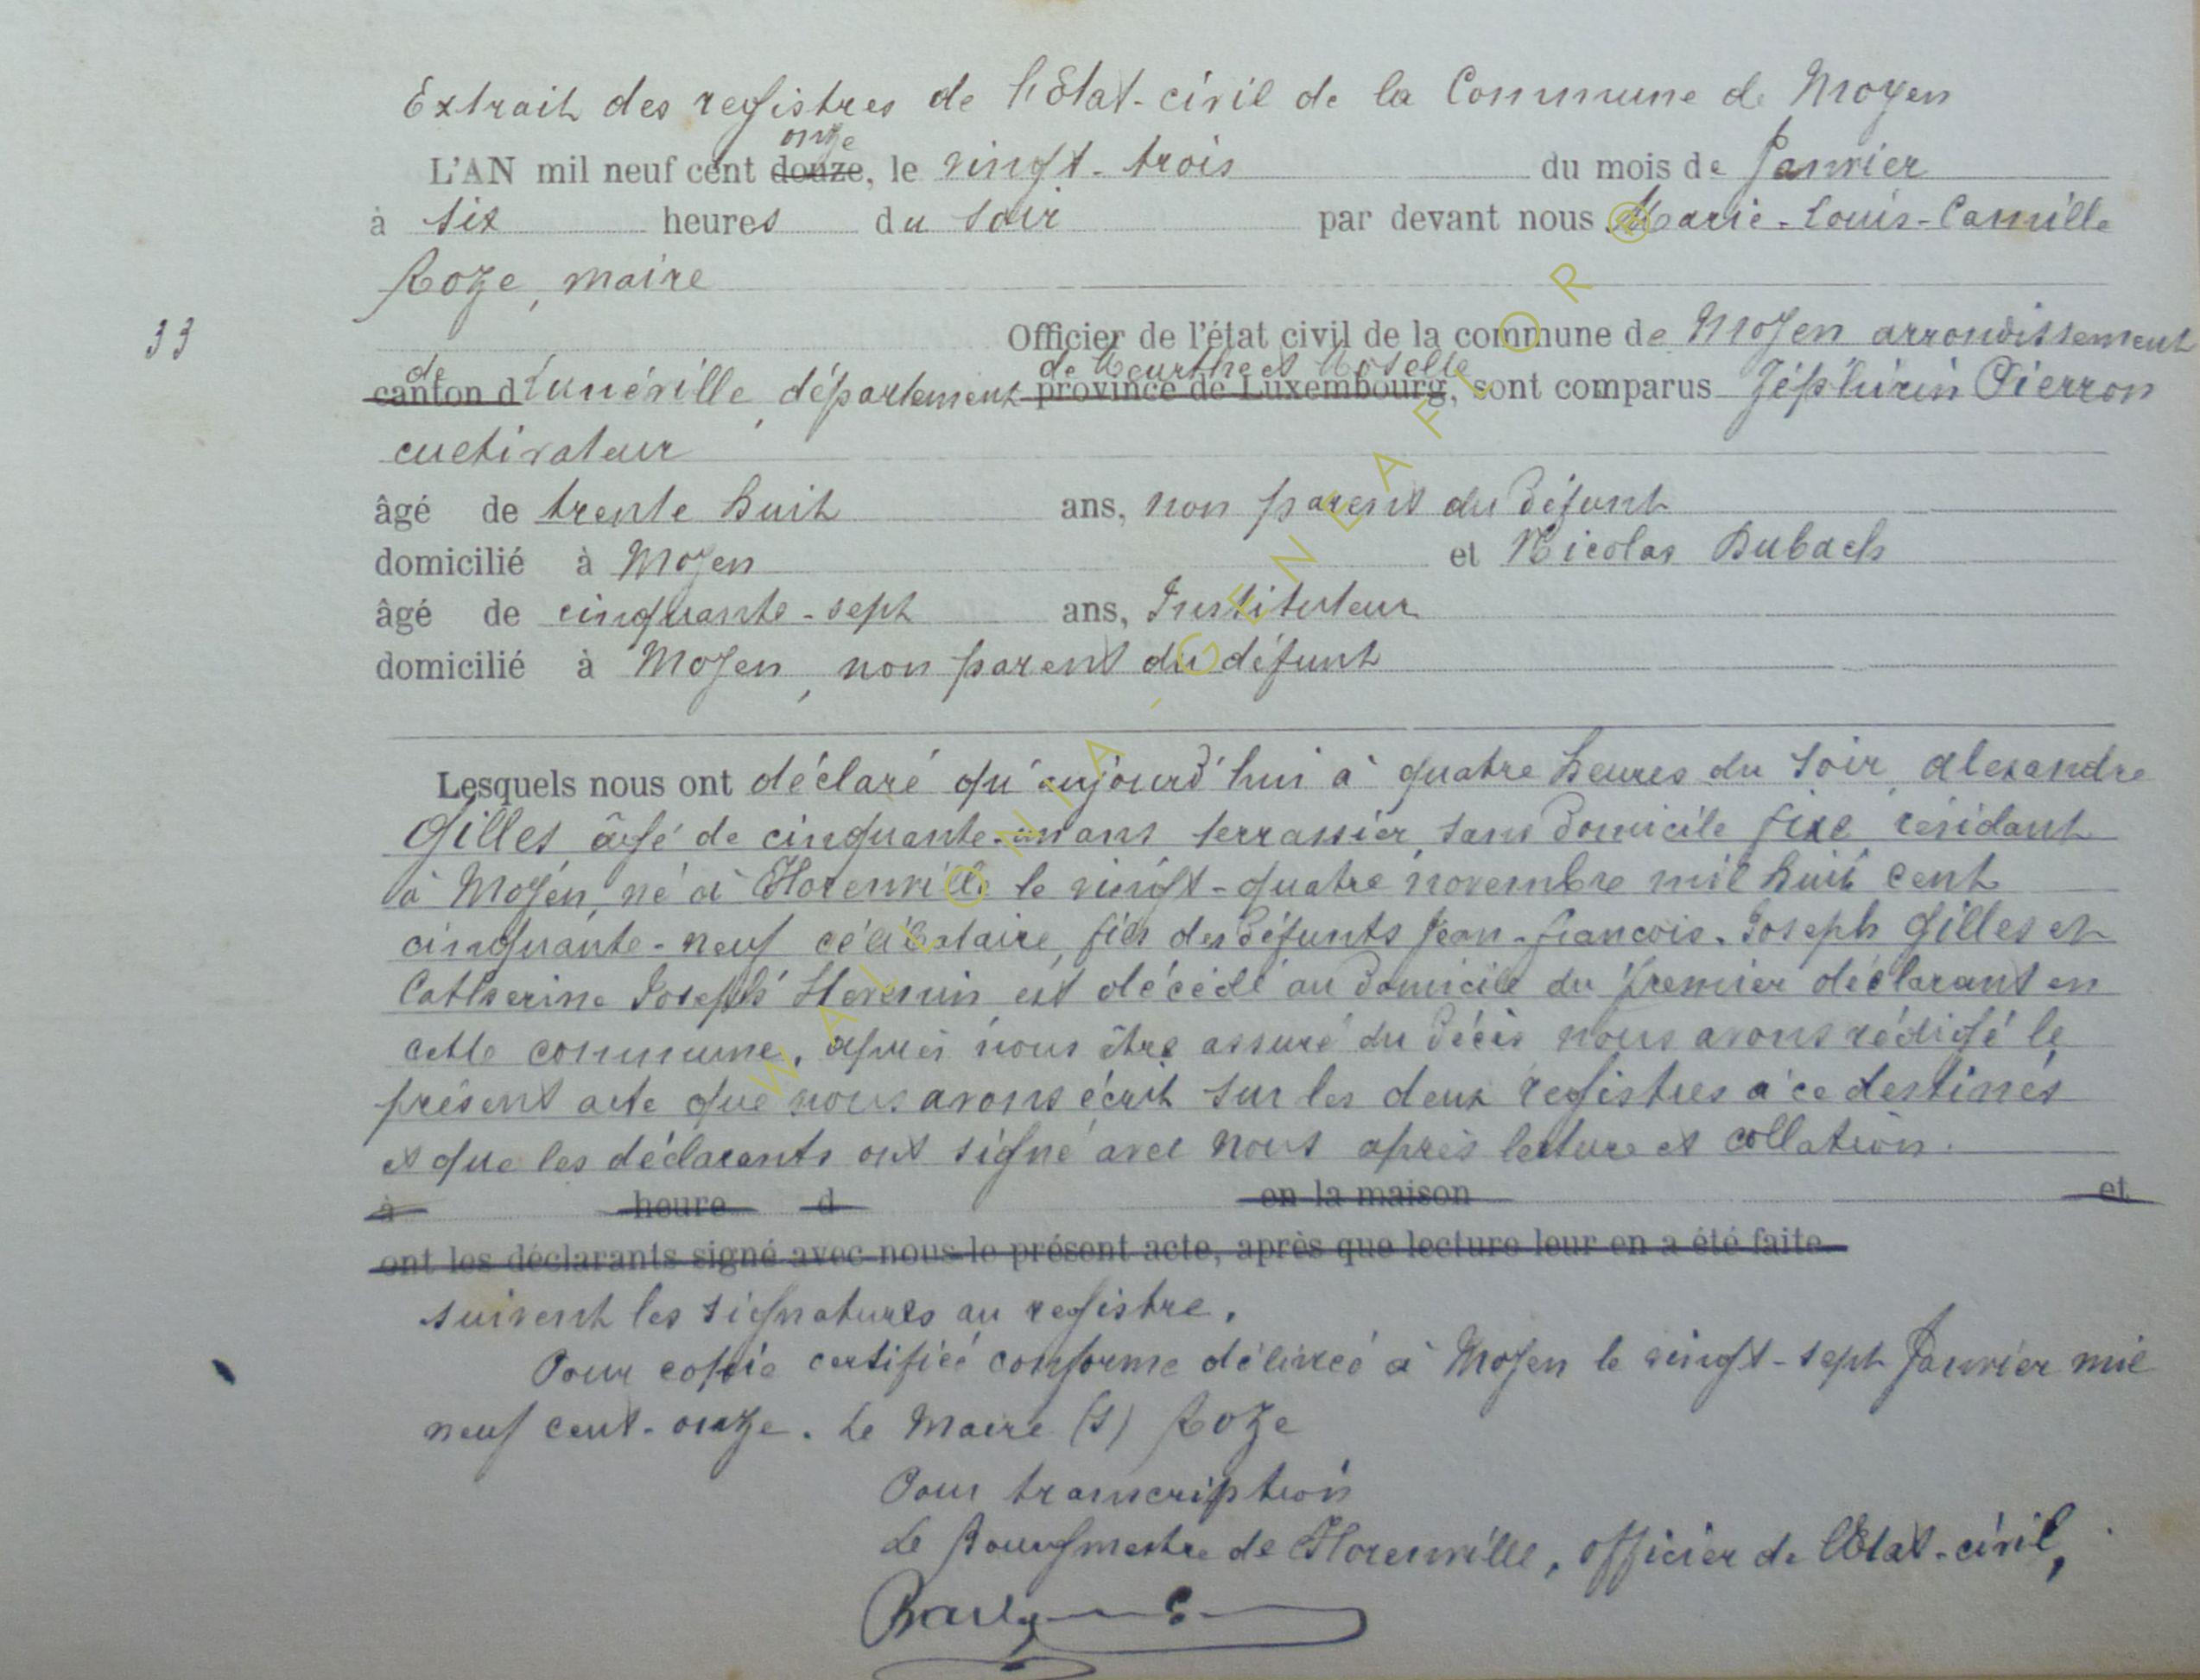 Extrait des registres de l'Etat-civil de la Commune de Moyen
onze
L'AN mil neuf cent douze, le vingt-trois du mois de Janvier
à six heures du soir par devant nous Marie-Louis-Camille
Roze, maire
33
Officier de l'état civil de la commune de Moyen arrondissement
de de Meurthe et Moselle
canton d Lunéville, département province de Luxembourg, sont comparus Zéphirin Pierron
cultivateur
âgé de trente huit ans, non parent du défunt
domicilié à Moyen et Nicolas Hubach
âgé de cinquante-sept ans, Instituteur
domicilié à Moyen, non parent du défunt
Lesquels nous ont déclaré qu'aujourd'hui à quatre heures du soir, Alexandre
Gilles âgé de cinquante-un ans terrassier, sans domicile fixe résidant
à Moyen, né à Florenville le vingt-quatre novembre mil huit cent
cinquante-neuf célibataire, fils des défunts Jean-François-Joseph Gilles et
Catherine Joseph est décédé au domicile du premier déclarant en
cette commune, après nous être assuré du décès nous avons rédigé le
présent acte que nous avons écrit sur les deux registres à ce destinés
et que les déclarants ont signé avec nous après lecture et collation.
à heure d en la maison et
ont les déclarants signé avec nous le présent acte, après que lecture leur en a été faite
suivent les signatures au registre.
Pour copie certifiée conforme délivrée à Moyen le vingt-sept Janvier mil
neuf cent-onze. Le Maire (s) Roze
Pour transcription
Le Bourgmestre de Florenville, officier de l'Etat-civil,
WALLONIA - GENEAFLOR @